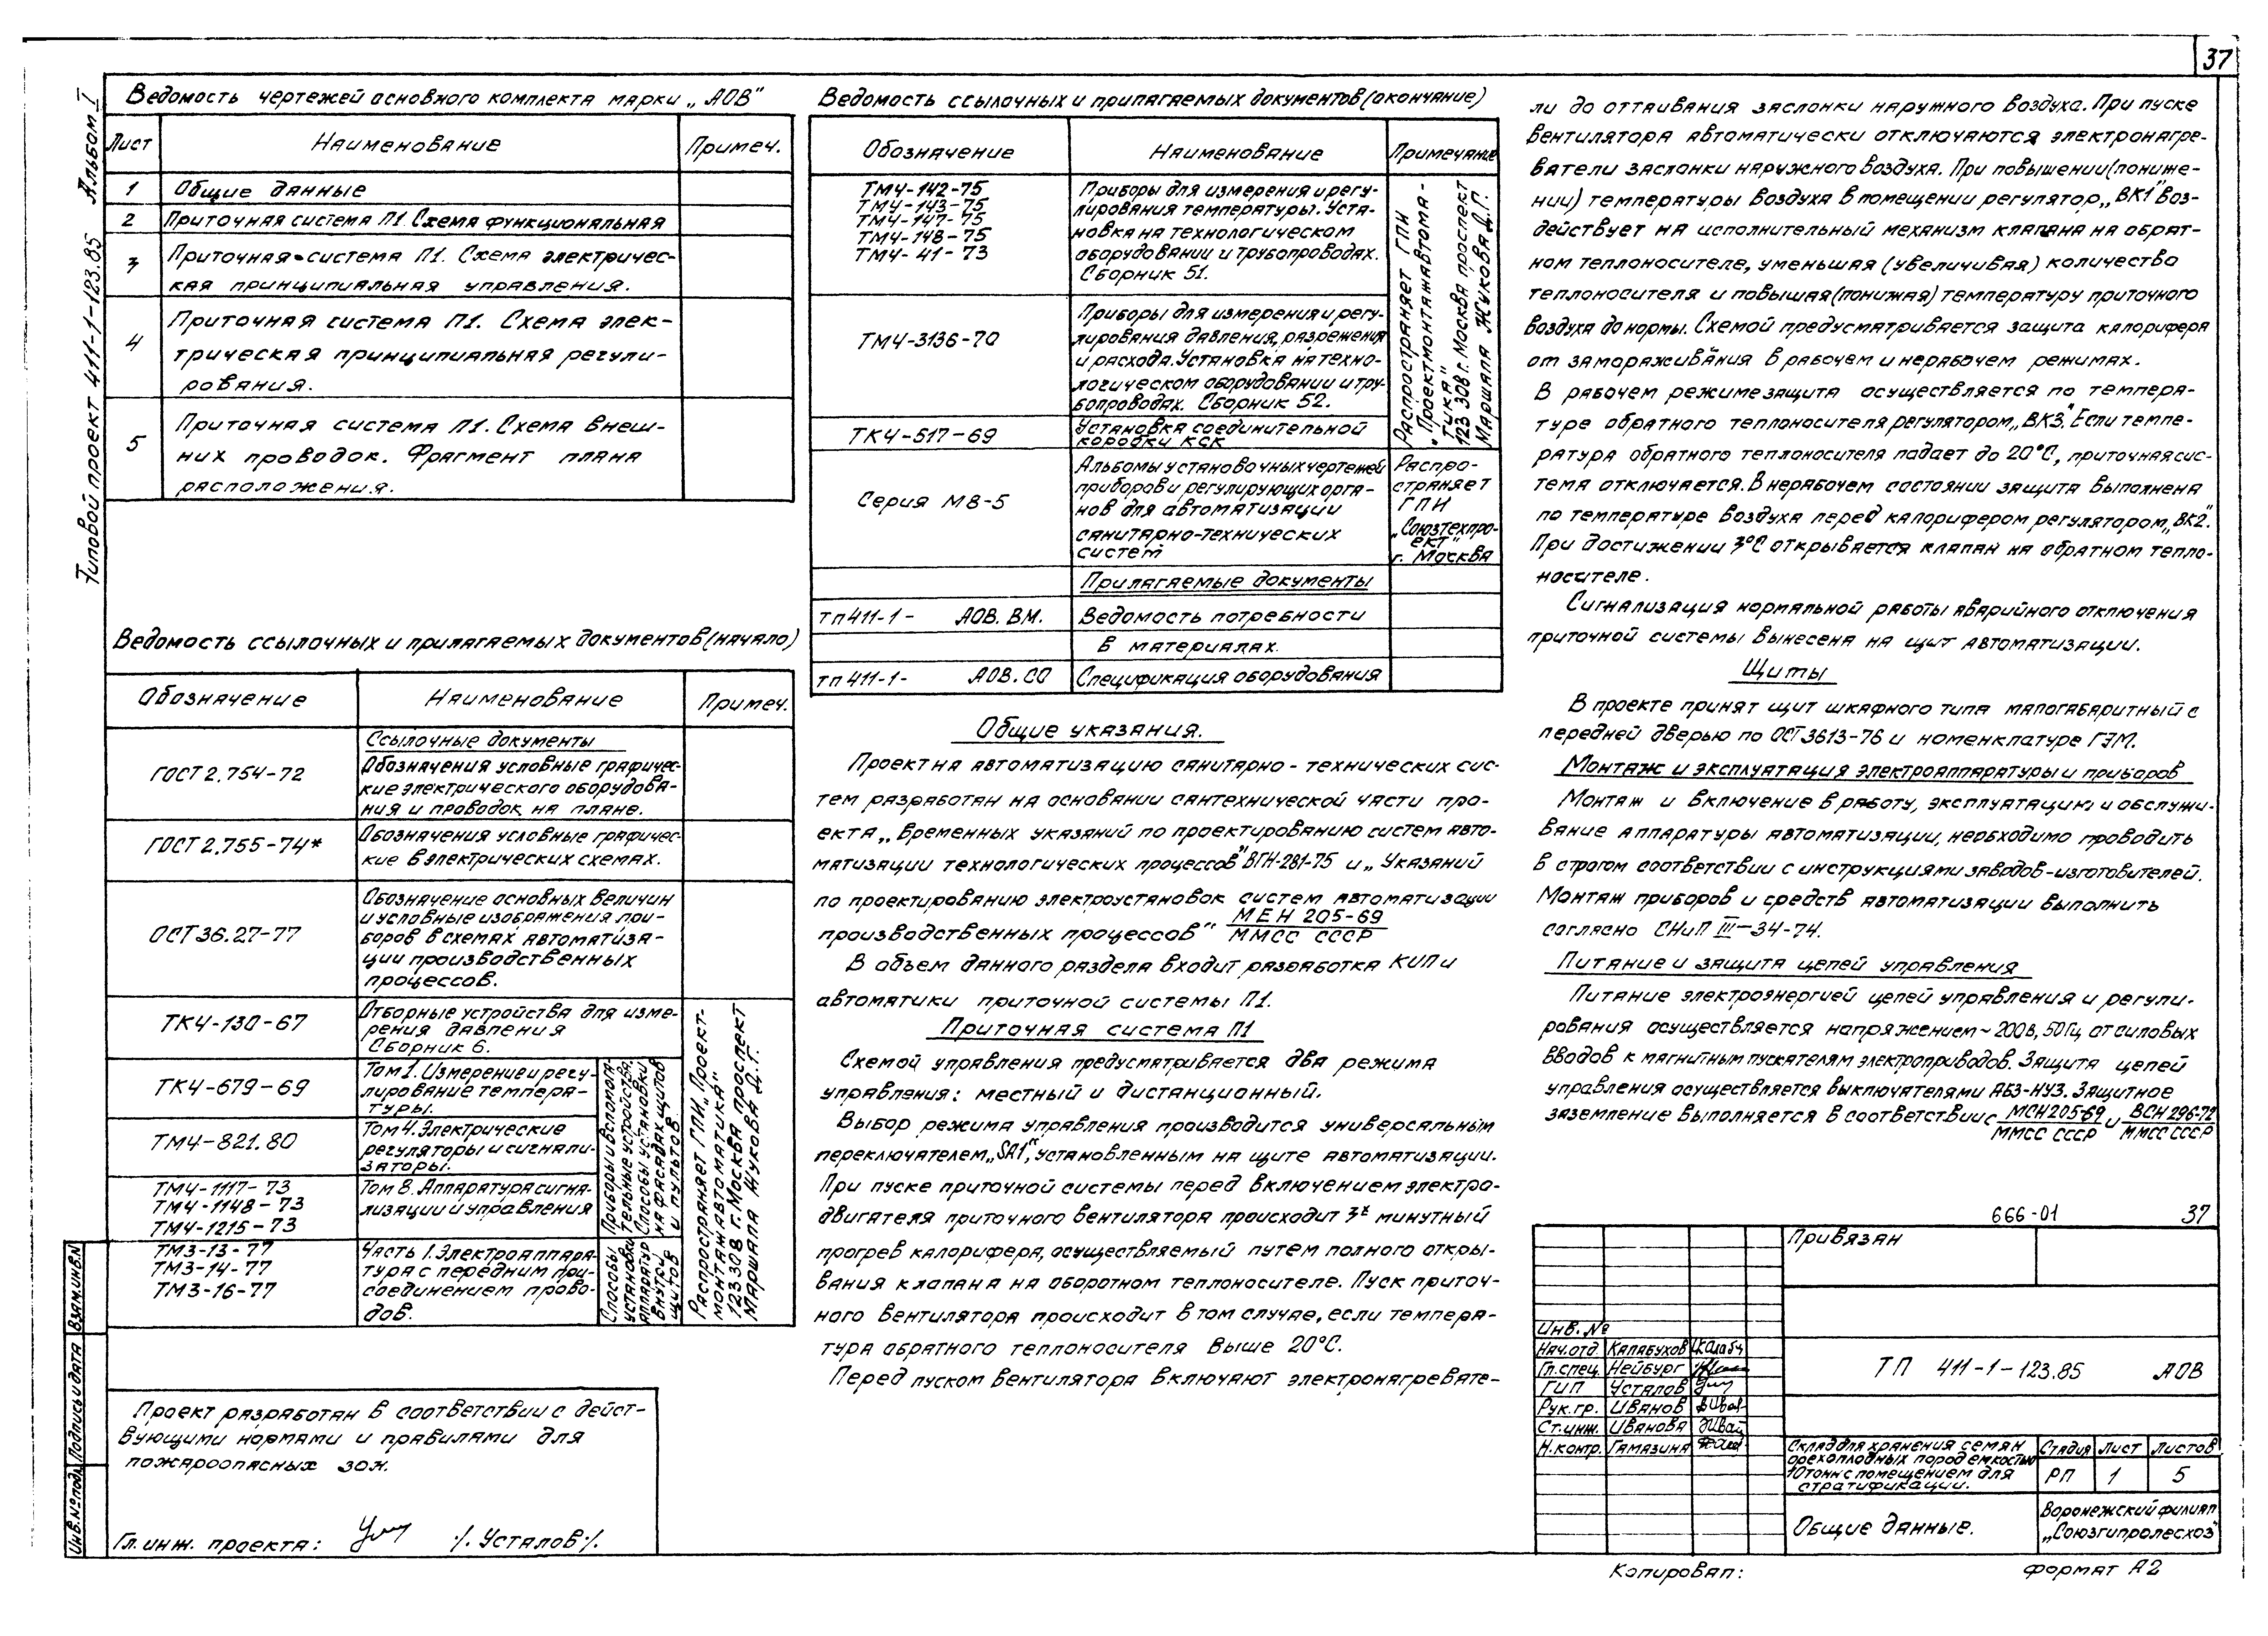 37
Альбом I
Типовой проект 411-1-123.85
Ведомость чертежей основного комплекта марки „АОВ"
Лист Наименование Примеч.
1 Общие данные
2 Приточная система П1. Схема функциональная
3 Приточная система П1. Схема электричес-
кая принципиальная управления.
4 Приточная система П1. Схема элек-
трическая принципиальная регули-
рования.
5 Приточная система П1. Схема внеш-
них проводок. Фрагмент плана
расположения.
Ведомость ссылочных и прилагаемых документов (начало)
Обозначение Наименование Примеч.
Ссылочные документы
ГОСТ 2.754-72 Обозначения условные графичес-
кие электрического оборудова-
ния и проводок на плане.
ГОСТ 2.755-74* Обозначения условные графичес-
кие в электрических схемах.
ОСТ 36.27-77 Обозначение основных величин
и условные изображения при-
боров в схемах автоматиза-
ции производственных
процессов.
ТК4-130-67 Отборные устройства для изме-
рения давления
Сборник 6.
ТК4-679-69 Том 1. Измерение и регу-
лирование темпера-
туры.
ТМ4-821.80 Том 4. Электрические
регуляторы и сигнали-
заторы.
ТМ4-1117-73 Том 8. Аппаратура сигна-
ТМ4-1148-73 лизации и управления
ТМ4-1215-73
ТМ3-13-77 Часть 1. Электроаппара-
ТМ3-14-77 тура с передним при-
ТМ3-16-77 соединением прово-
дов.
Приборы и вспомога-
тельные устройства.
Способы установки
на фасадах щитов
и пультов.
Способы
установки
аппаратур
внутри
щитов
Распространяет ГПИ „Проект-
монтажавтоматика"
123308 г. Москва проспект
Маршала Жукова Д.Г.
Проект разработан в соответствии с дейст-
вующими нормами и правилами для
пожароопасных зон.
Гл. инж. проекта: /. Усталов /.
Инв.№подл. Подпись и дата Взам.инв.N
Ведомость ссылочных и прилагаемых документов (окончание)
Обозначение Наименование Примечание
ТМ4-142-75 Приборы для измерения и регу-
ТМ4-143-75 лирования температуры. Уста-
ТМ4-147-75 новка на технологическом
ТМ4-148-75 оборудовании и трубопроводах.
ТМ4-41-73 Сборник 51.
ТМ4-3136-70 Приборы для измерения и регу-
лирования давления, разрежения
и расхода. Установка на техно-
логическом оборудовании и тру-
бопроводах. Сборник 52.
ТК4-517-69 Установка соединительной
коробки КСК
Распространяет ГПИ
„Проектмонтажавтома-
тика"
123 308 г. Москва проспект
Маршала Жукова Д.Г.
Серия М8-5 Альбомы установочных чертежей
приборов и регулирующих орга-
нов для автоматизации
санитарно-технических
систем
Распро-
страняет
ГПИ
„Союзтехпро-
ект"
г. Москва
Прилагаемые документы
тп 411-1- АОВ. ВМ. Ведомость потребности
в материалах.
тп 411-1- АОВ. СО Спецификация оборудования
Общие указания.
Проект на автоматизацию санитарно-технических сис-
тем разработан на основании сантехнической части про-
екта „Временных указаний по проектированию систем авто-
матизации технологических процессов" ВГН-281-75 и „Указаний
по проектированию электроустановок систем автоматизации
производственных процессов" МЕН 205-69
ММСС СССР
В объем данного раздела входит разработка КИП и
автоматики приточной системы П1.
Приточная система П1
Схемой управления предусматривается два режима
управления: местный и дистанционный.
Выбор режима управления производится универсальным
переключателем „SA1", установленным на щите автоматизации.
При пуске приточной системы перед включением электро-
двигателя приточного вентилятора происходит 3х минутный
прогрев калорифера, осуществляемый путем полного откры-
вания клапана на оборотном теплоносителе. Пуск приточ-
ного вентилятора происходит в том случае, если темпера-
тура обратного теплоносителя выше 20°С.
Перед пуском вентилятора включают электронагревате-
ли до оттаивания заслонки наружного воздуха. При пуске
вентилятора автоматически отключаются электронагре-
ватели заслонки наружного воздуха. При повышении (пониже-
нии) температуры воздуха в помещении регулятор „ВК1" воз-
действует на исполнительный механизм клапана на обрат-
ном теплоносителе, уменьшая (увеличивая) количество
теплоносителя и повышая (понижая) температуру приточного
воздуха до нормы. Схемой предусматривается защита калорифера
от замораживания в рабочем и нерабочем режимах.
В рабочем режиме защита осуществляется по темпера-
туре обратного теплоносителя регулятором „ВК3". Если темпе-
ратура обратного теплоносителя падает до 20°С, приточная сис-
тема отключается. В нерабочем состоянии защита выполнена
по температуре воздуха перед калорифером регулятором „ВК2".
При достижении 3°С открывается клапан на обратном тепло-
носителе.
Сигнализация нормальной работы аварийного отключения
приточной системы вынесена на щит автоматизации.
Щиты
В проекте принят щит шкафного типа малогабаритный с
передней дверью по ОСТ 3613-76 и номенклатуре ГЭМ.
Монтаж и эксплуатация электроаппаратуры и приборов
Монтаж и включение в работу, эксплуатацию и обслужи-
вание аппаратуры автоматизации, необходимо проводить
в строгом соответствии с инструкциями заводов-изготовителей.
Монтаж приборов и средств автоматизации выполнить
согласно СНиП III-34-74.
Питание и защита цепей управления
Питание электроэнергией цепей управления и регули-
рования осуществляется напряжением ~ 200в, 50Гц от силовых
вводов к магнитным пускателям электроприводов. Защита цепей
управления осуществляется выключателями АБЗ-НУЗ. Защитное
заземление выполняется в соответствии с МСН 205-69 и ВСН 296-72
ММСС СССР ММСС СССР
666-01 37
Привязан
Инв. №
Нач.отд. Калабухов
Гл.спец. Нейбург
ГИП Усталов
Рук.гр. Иванов
Ст.инж. Иванова
Н.контр. Гамазина
ТП 411-1-123.85 АОВ
Склад для хранения семян
орехоплодных пород емкостью
10тонн с помещением для
стратификации.
Стадия Лист Листов
РП 1 5
Общие данные.
Воронежский филиал
„Союзгипролесхоз"
Копировал: формат А2